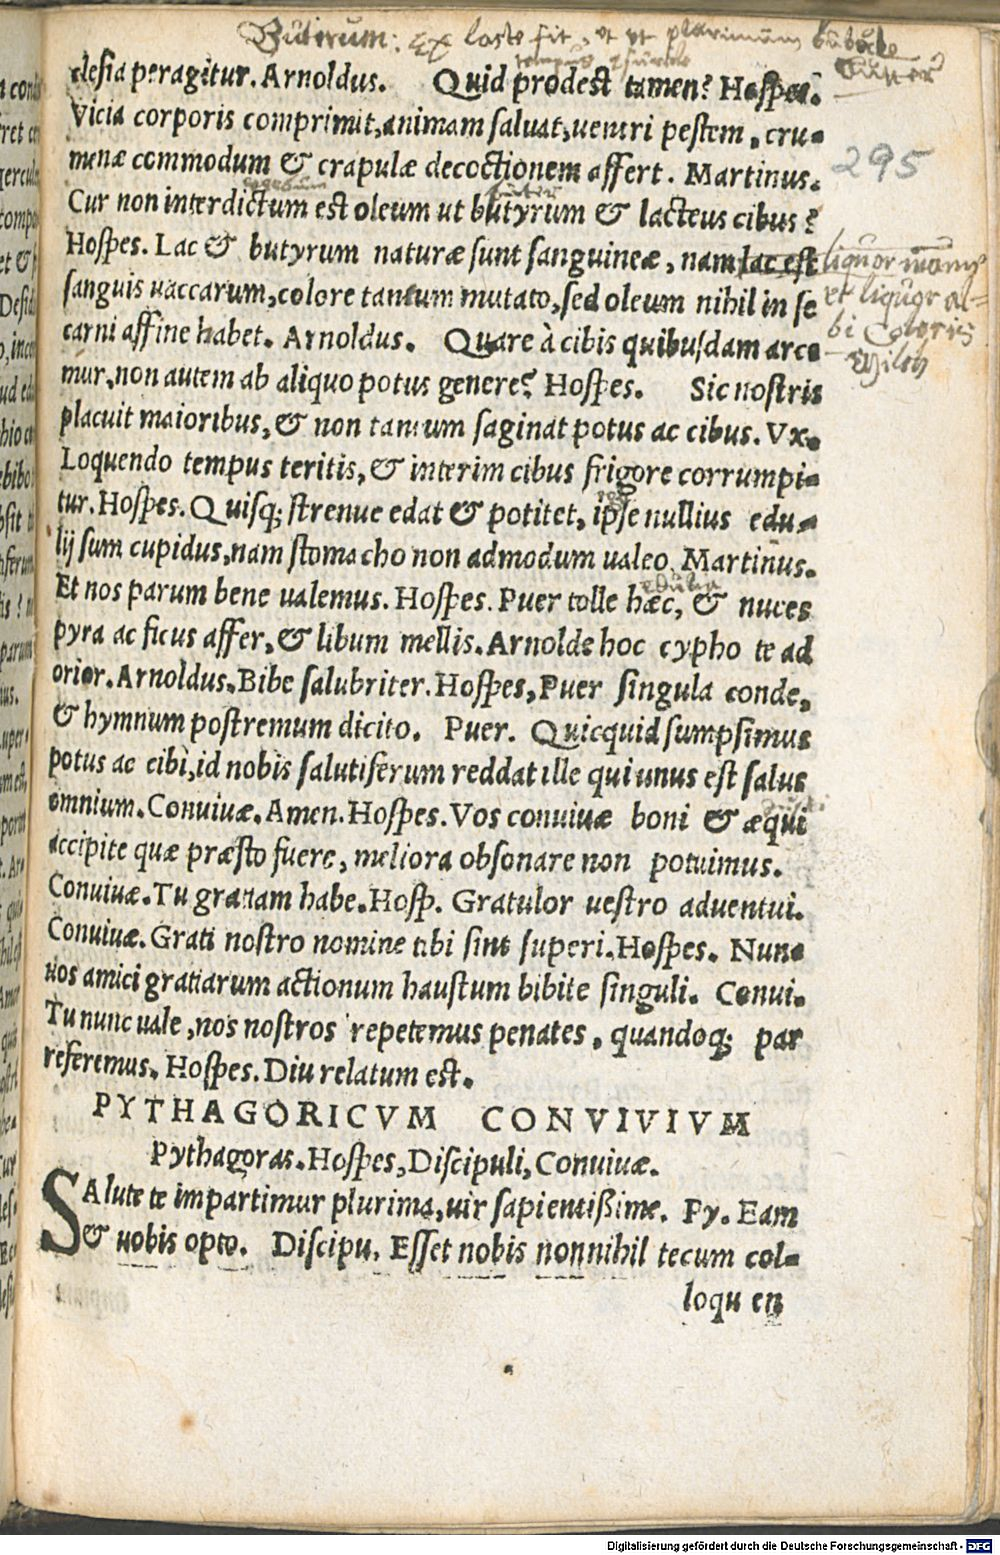 Butirum: Ex lacte fit, et ut plurimum bubulo
Butter
clesia peragitur. Arnoldus. Quid prodest tamen? Hospes.
Vicia corporis comprimit, animam saluat, uentri pestem, cru-
295
menæ commodum & crapulæ decoctionem affert. Martinus.
butter
Cur non interdictum est oleum ut butyrum & lacteus cibus?
Hospes. Lac & butyrum naturæ sunt sanguineæ, nam lac est
liquor
sanguis uaccarum, colore tantum mutato, sed oleum nihil in se
et liquor al-
bi coloris
carni affine habet. Arnoldus. Quare à cibis quibusdam arce-
Milch
mur, non autem ab aliquo potus genere? Hospes. Sic nostris
placuit maioribus, & non tantum saginat potus ac cibus. Vx.
Loquendo tempus teritis, & interim cibus frigore corrumpi-
tur. Hospes. Quisq; strenue edat & potitet, ipse nullius edu-
lij sum cupidus, nam stomacho non admodum ualeo. Martinus.
edulia
Et nos parum bene ualemus. Hospes. Puer tolle hæc, & nuces
pyra ac ficus affer, & libum mellis. Arnolde hoc cypho te ad
orior. Arnoldus. Bibe salubriter. Hospes, Puer singula conde,
& hymnum postremum dicito. Puer. Quicquid sumpsimus
potus ac cibi, id nobis salutiferum reddat ille qui unus est salus
omnium. Conuiuæ. Amen. Hospes. Vos conuiuæ boni & æqui
accipite quæ præsto fuere, meliora obsonare non potuimus.
Conuiuæ. Tu gratiam habe. Hosp. Gratulor uestro aduentui.
Conuiuæ. Grati nostro nomine tibi sint superi. Hospes. Nunc
uos amici gratiarum actionum haustum bibite singuli. Conui.
Tu nunc uale, nos nostros repetemus penates, quandoq; par
referemus. Hospes. Diu relatum est.
PYTHAGORICVM CONVIVIVM
Pythagoras. Hospes, Discipuli, Conuiuæ.
SAlute te impartimur plurima, uir sapientißime. Py. Eam
& uobis opto. Discipu. Esset nobis nonnihil tecum col-
loqu en
Digitalisierung gefördert durch die Deutsche Forschungsgemeinschaft - DFG